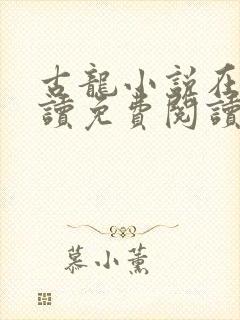 古龍小說在
讀免費閱讀
慕小薰